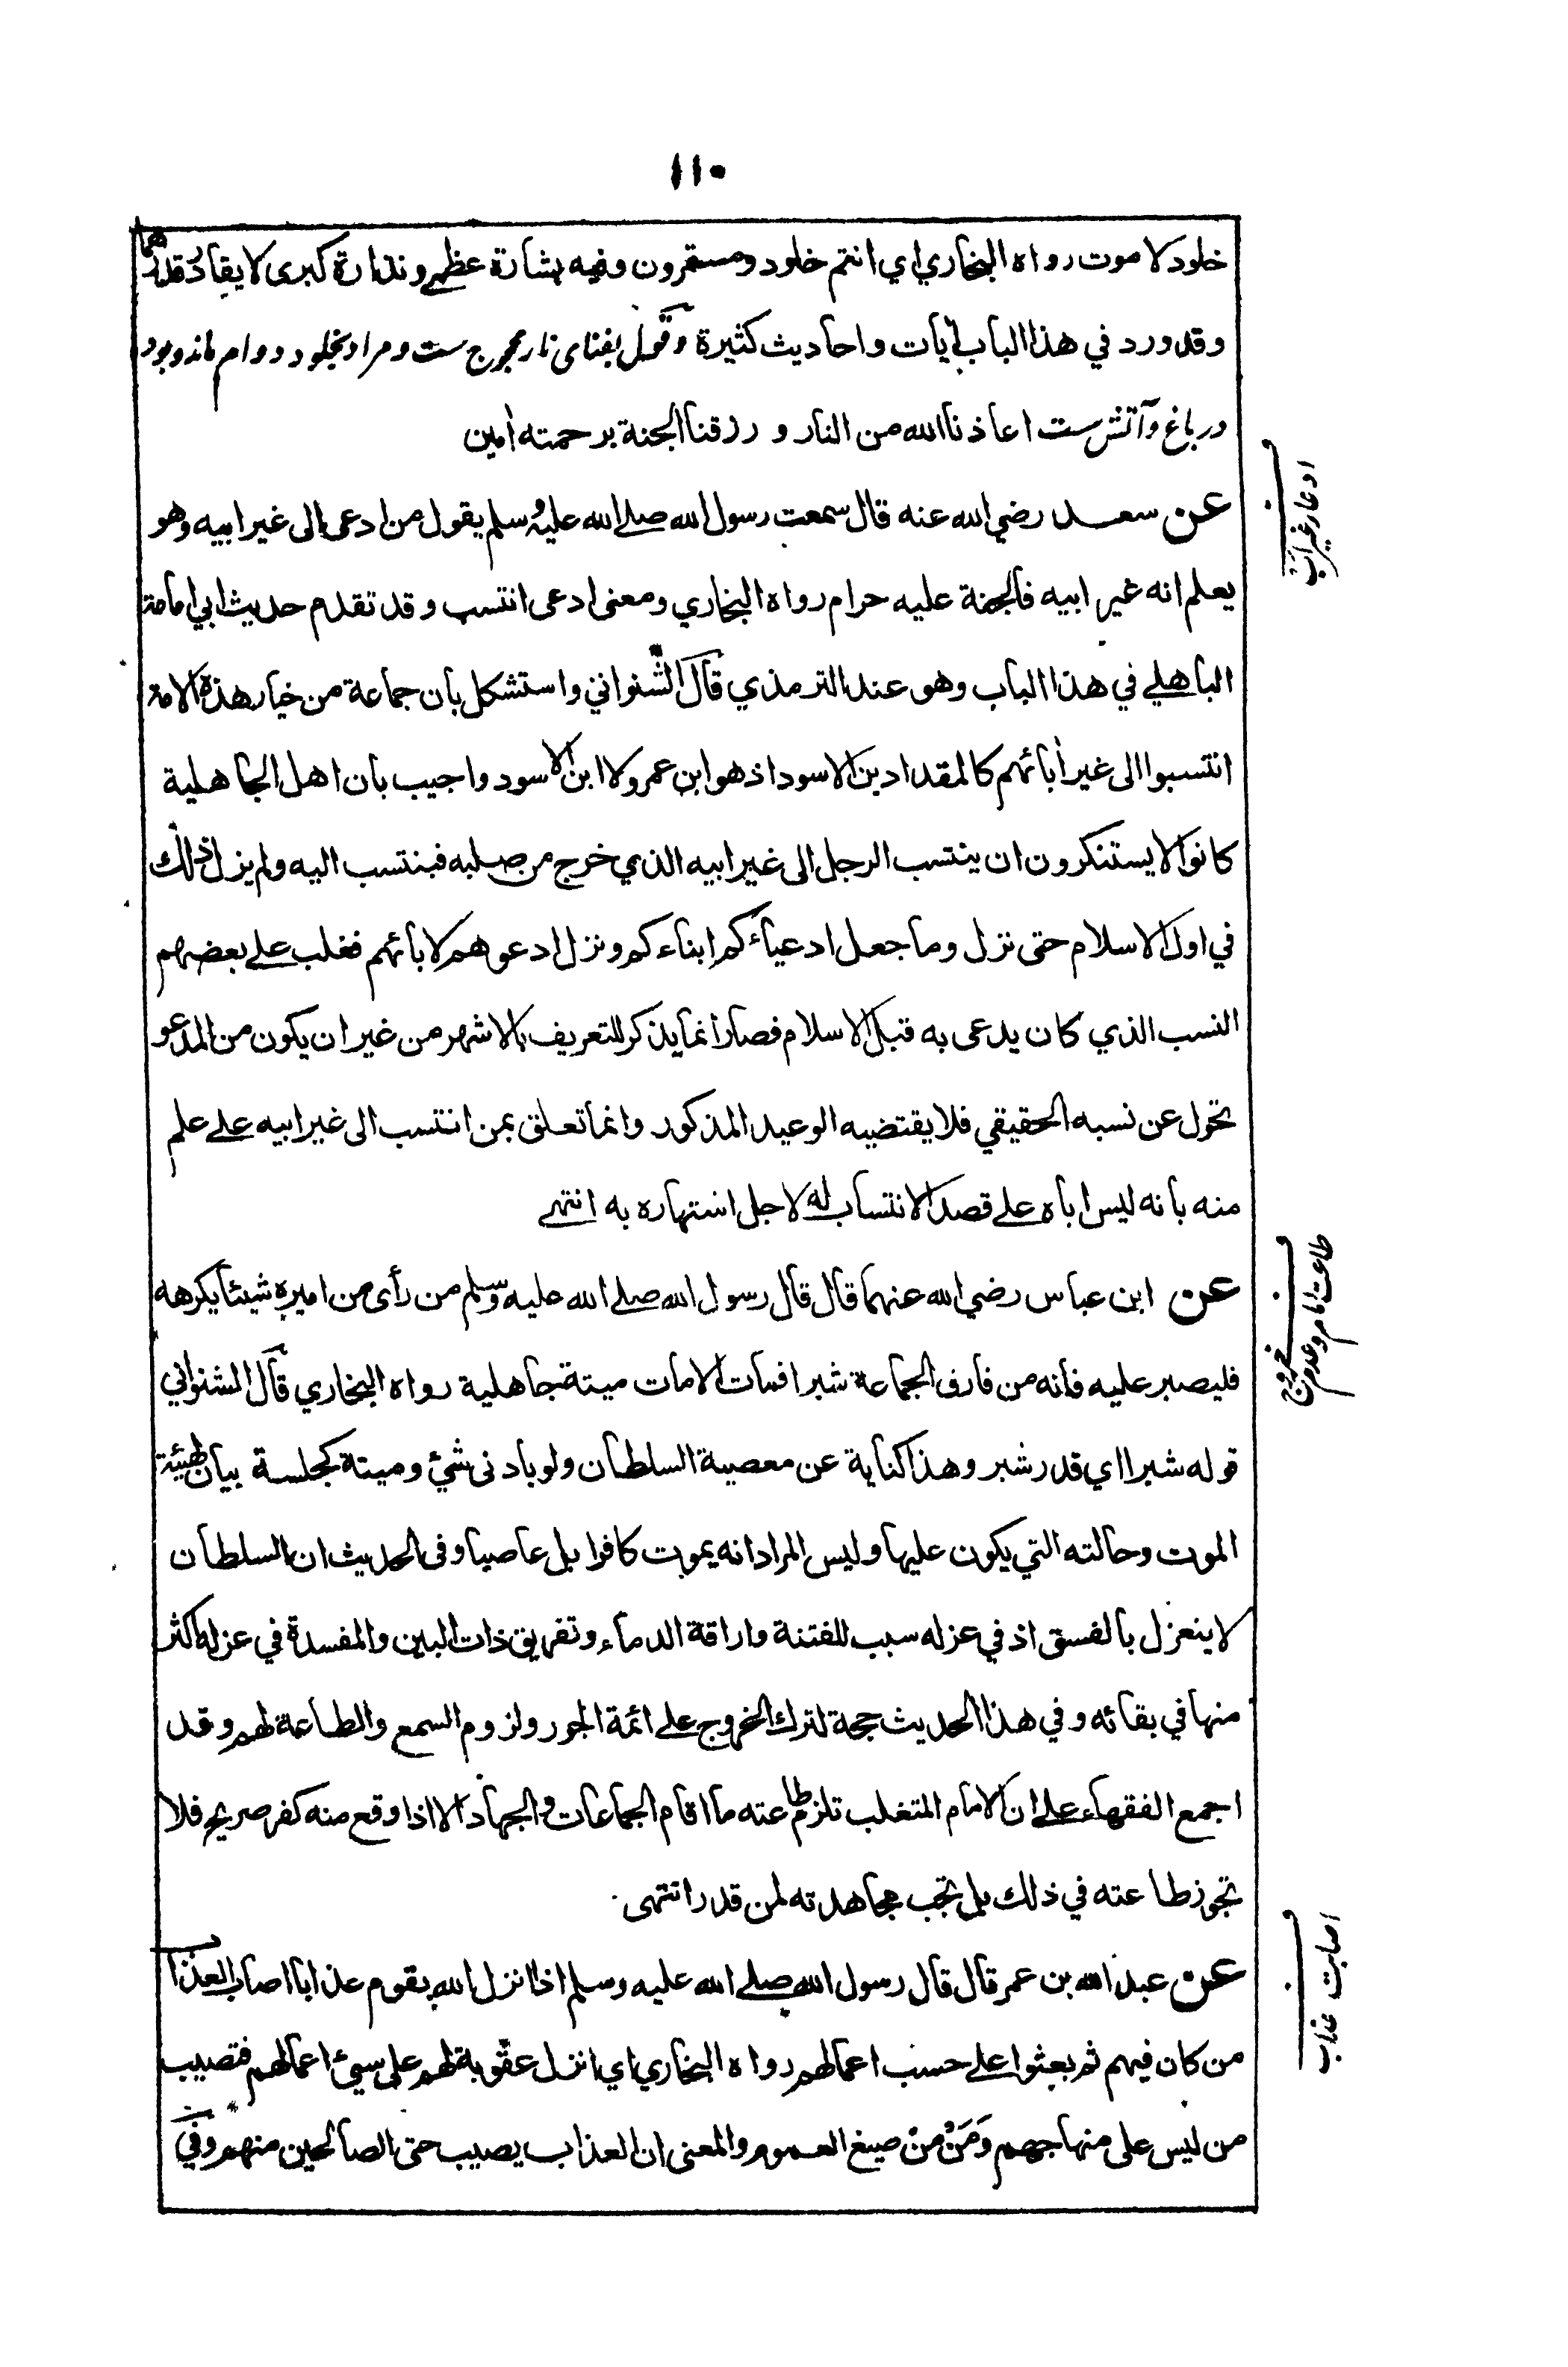 ١١٠
خلود لا موت رواه البخاري اي انتم خلود ومستقرون وفيه بشارة عظمے ونذارة كبرى لا يقادر قدرهما
وقد ورد في هذا الباب آيات واحاديث كثيرة وقول بفناى نار مجروح ست ومراد بخلود دوام ماند وبود
در باغ وآتش ست اعاذنا الله من النار و رزقنا الجنة برحمته اٰمين
عن سعد رضي الله عنه قال سمعت رسول الله صلے الله عليه وسلم يقول من ادعى الى غير ابيه وهو
يعلم انه غير ابيه فالجنة عليه حرام رواه البخاري ومعنى ادعى انتسب وقد تقدم حديث ابي امامة
الباهلے في هذا الباب وهو عند الترمذي قال الشنواني واستشكل بان جماعة من خيار هذه الامة
انتسبوا الى غير اٰبائهم كالمقداد بن الاسود اذ هو ابن عمرو لا ابن الاسود واجيب بان اهل الجاهلية
كانوا لا يستنكرون ان ينتسب الرجل الى غير ابيه الذي خرج من صلبه فينتسب اليه ولم يزل ذلك
في اول الاسلام حتى نزل وما جعل ادعياءكم ابناءكم ونزل ادعوهم لاٰبائهم فغلب علے بعضهم
النسب الذي كان يدعى به قبل الاسلام فصار انما يذكر للتعريف بالاشهر من غير ان يكون من المدعو
تحول عن نسبه الحقيقي فلا يقتضيه الوعيد المذكور وانما تعلق بمن انتسب الى غير ابيه علے علم
منه بانه ليس اباه علے قصد الانتساب له لا لاجل اشتهاره به انتهے
عن ابن عباس رضي الله عنهما قال قال رسول الله صلے الله عليه وسلم من رأى من اميره شيئا يكرهه
فليصبر عليه فانه من فارق الجماعة شبرا فمات الا مات ميتة جاهلية رواه البخاري قال الشنواني
قوله شبرا اي قدر شبر وهذا كناية عن معصية السلطان ولو بادنى شيئ وميتة كجلسة بيان لهيئة
الموت وحالته التي يكون عليها وليس المراد انه يموت كافرا بل عاصيا وفى الحديث ان السلطان
لا ينعزل بالفسق اذ في عزله سبب للفتنة واراقة الدماء وتفريق ذات البين والمفسدة في عزله اكثر
منها في بقائه وفي هذا الحديث حجة لترك الخروج علے ائمة الجور ولزوم السمع والطاعة لهم وقد
اجمع الفقهاء علے ان الامام المتغلب تلزم طاعته ما اقام الجماعات والجهاد الا اذا وقع منه كفر صريح فلا
تجوز طاعته في ذلك بل تجب مجاهدته لمن قدر انتهى
عن عبد الله بن عمر قال قال رسول الله صلے الله عليه وسلم اذا انزل الله بقوم عذابا اصاب العذاب
من كان فيهم ثم بعثوا علے حسب اعمالهم رواه البخاري اي انزل عقوبة لهم على سيئ اعمالهم فتصيب
من ليس على منهاجهم وَمَنْ مِنْ صيغ العموم والمعنى ان العذاب يصيب حتى الصالحين منهم وفي
ادعاء غير اب
طاعت امام وعدم خروج
اصابت عذاب